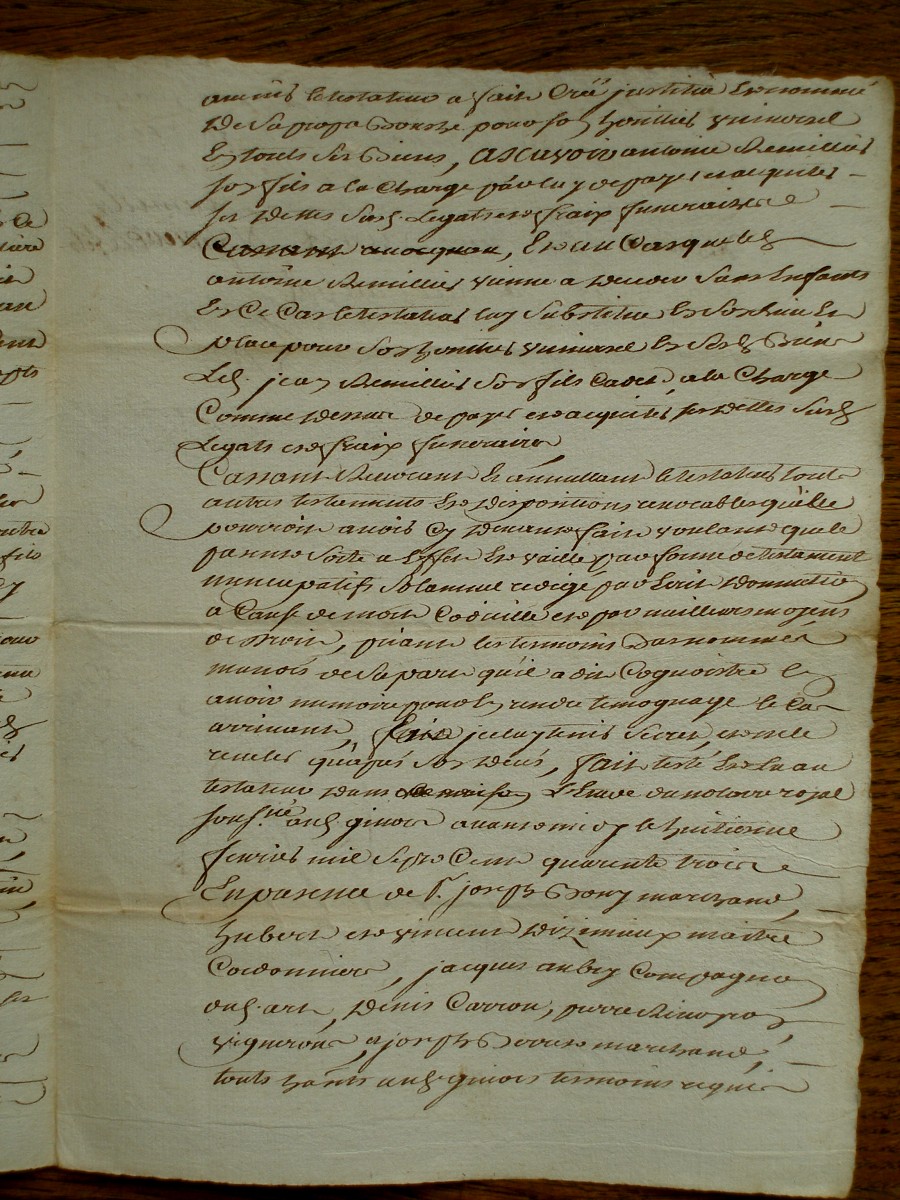 avenir le testateur a fait Créé jnstitué et nommé
de Sa propre Bouche pour son heritier vniversel
En touts Ses Biens, ascavoir antoine Remillier
son fils a la Charge par luy de payer et acquiter
ses dettes Susd. Legats et fraix funeraires
et au Cas que led.
antoine Remillier vienne a deceder Sans Enfants
En Ce Cas le testateur luy Substitue En Son lieu Et
place pour Son heritier vniversel En Sesd. Biens
Led. jean Remillier Son fils Cadet a la Charge
Comme dessus de payer et acquiter ses dettes Susd.
Legats et fraix funeraires
Cassant Revocant Et annullant le testateur toute
autres testaments Et dispositions revocables qu'elle
pourroit avoir Cy devant fait voulant que le
present Sorte a Effet Et vaille par forme de testament
nuncupatif Solamnel redigé par Ecrit donnation
a Cause de mort Codicille et par meilleurs moyens
de droit, priant les temoins Basnommés
de Sa part qu'il a dit Cognoistre En
avoir memoire pour En rendre temognage le Cas
arrivant, jcelluy tenir Secret, et ne le
reveler qu'aprés Son deces, fait testé Et Lu au
testateur dans L'Etude du notaire royal
sousné. aud. givors avant midy le huitieme
fevrier mil Sept Cent quarente trois
En presence de Sr. joseph Bony marchand,
hubert et vincent maitre
Cordonniers, jacques aubry Compagnon
aud. art, denis Carron, pierre
vignerons, & joseph marchand,
touts hants aud. givors temoins requis